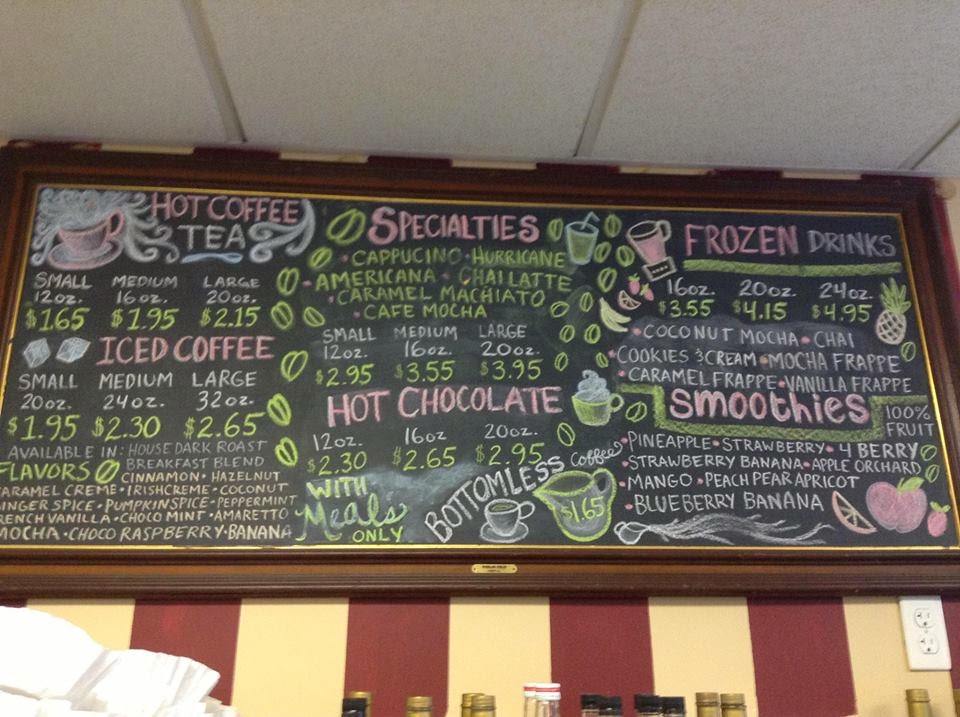 HOT COFFEE
TEA
SMALL MEDIUM LARGE
12oz. 16oz. 20oz.
$1.65 $1.95 $2.15
ICED COFFEE
SMALL MEDIUM LARGE
20oz. 24oz. 32oz.
$1.95 $2.30 $2.65
AVAILABLE IN: HOUSE DARK ROAST
BREAKFAST BLEND
FLAVORS CINNAMON • HAZELNUT
ARAMEL CREME • IRISHCREME • COCONUT
INGER SPICE • PUMPKIN SPICE • PEPPERMINT
RENCH VANILLA • CHOCO MINT • AMARETTO
MOCHA • CHOCO RASPBERRY • BANANA
SPECIALTIES
• CAPPUCINO • HURRICANE
• AMERICANA • CHAI LATTE
• CARAMEL MACHIATO
• CAFE MOCHA
SMALL MEDIUM LARGE
12oz. 16oz. 20oz.
$2.95 $3.55 $3.95
HOT CHOCOLATE
12oz. 16oz 20oz.
$2.30 $2.65 $2.95
WITH
Meals
ONLY
BOTTOMLESS Coffee
$1.65
FROZEN DRINKS
16oz. 20oz. 24oz.
$3.55 $4.15 $4.95
• COCONUT MOCHA • CHAI
• COOKIES & CREAM • MOCHA FRAPPE
• CARAMEL FRAPPE • VANILLA FRAPPE
Smoothies
100%
FRUIT
• PINEAPPLE • STRAWBERRY • 4 BERRY
• STRAWBERRY BANANA • APPLE ORCHARD
• MANGO • PEACH PEAR APRICOT
• BLUEBERRY BANANA